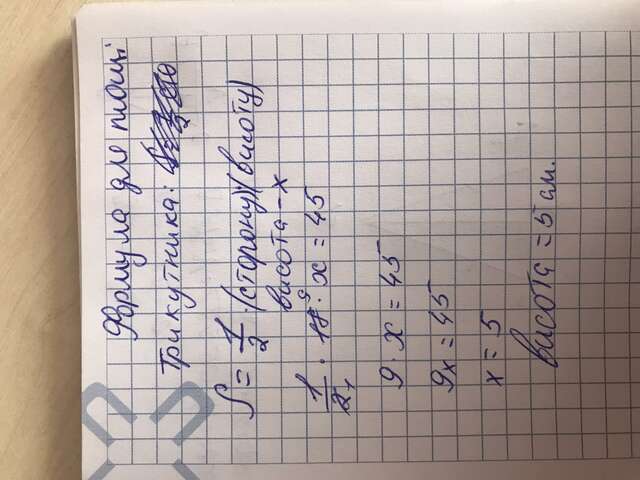 Формула для площі
трикутника:
S = 1/2 · (сторону)(висоту)
висота – x
1/2 · 18 · x = 45
9 · x = 45
9x = 45
x = 5
висота = 5 см.